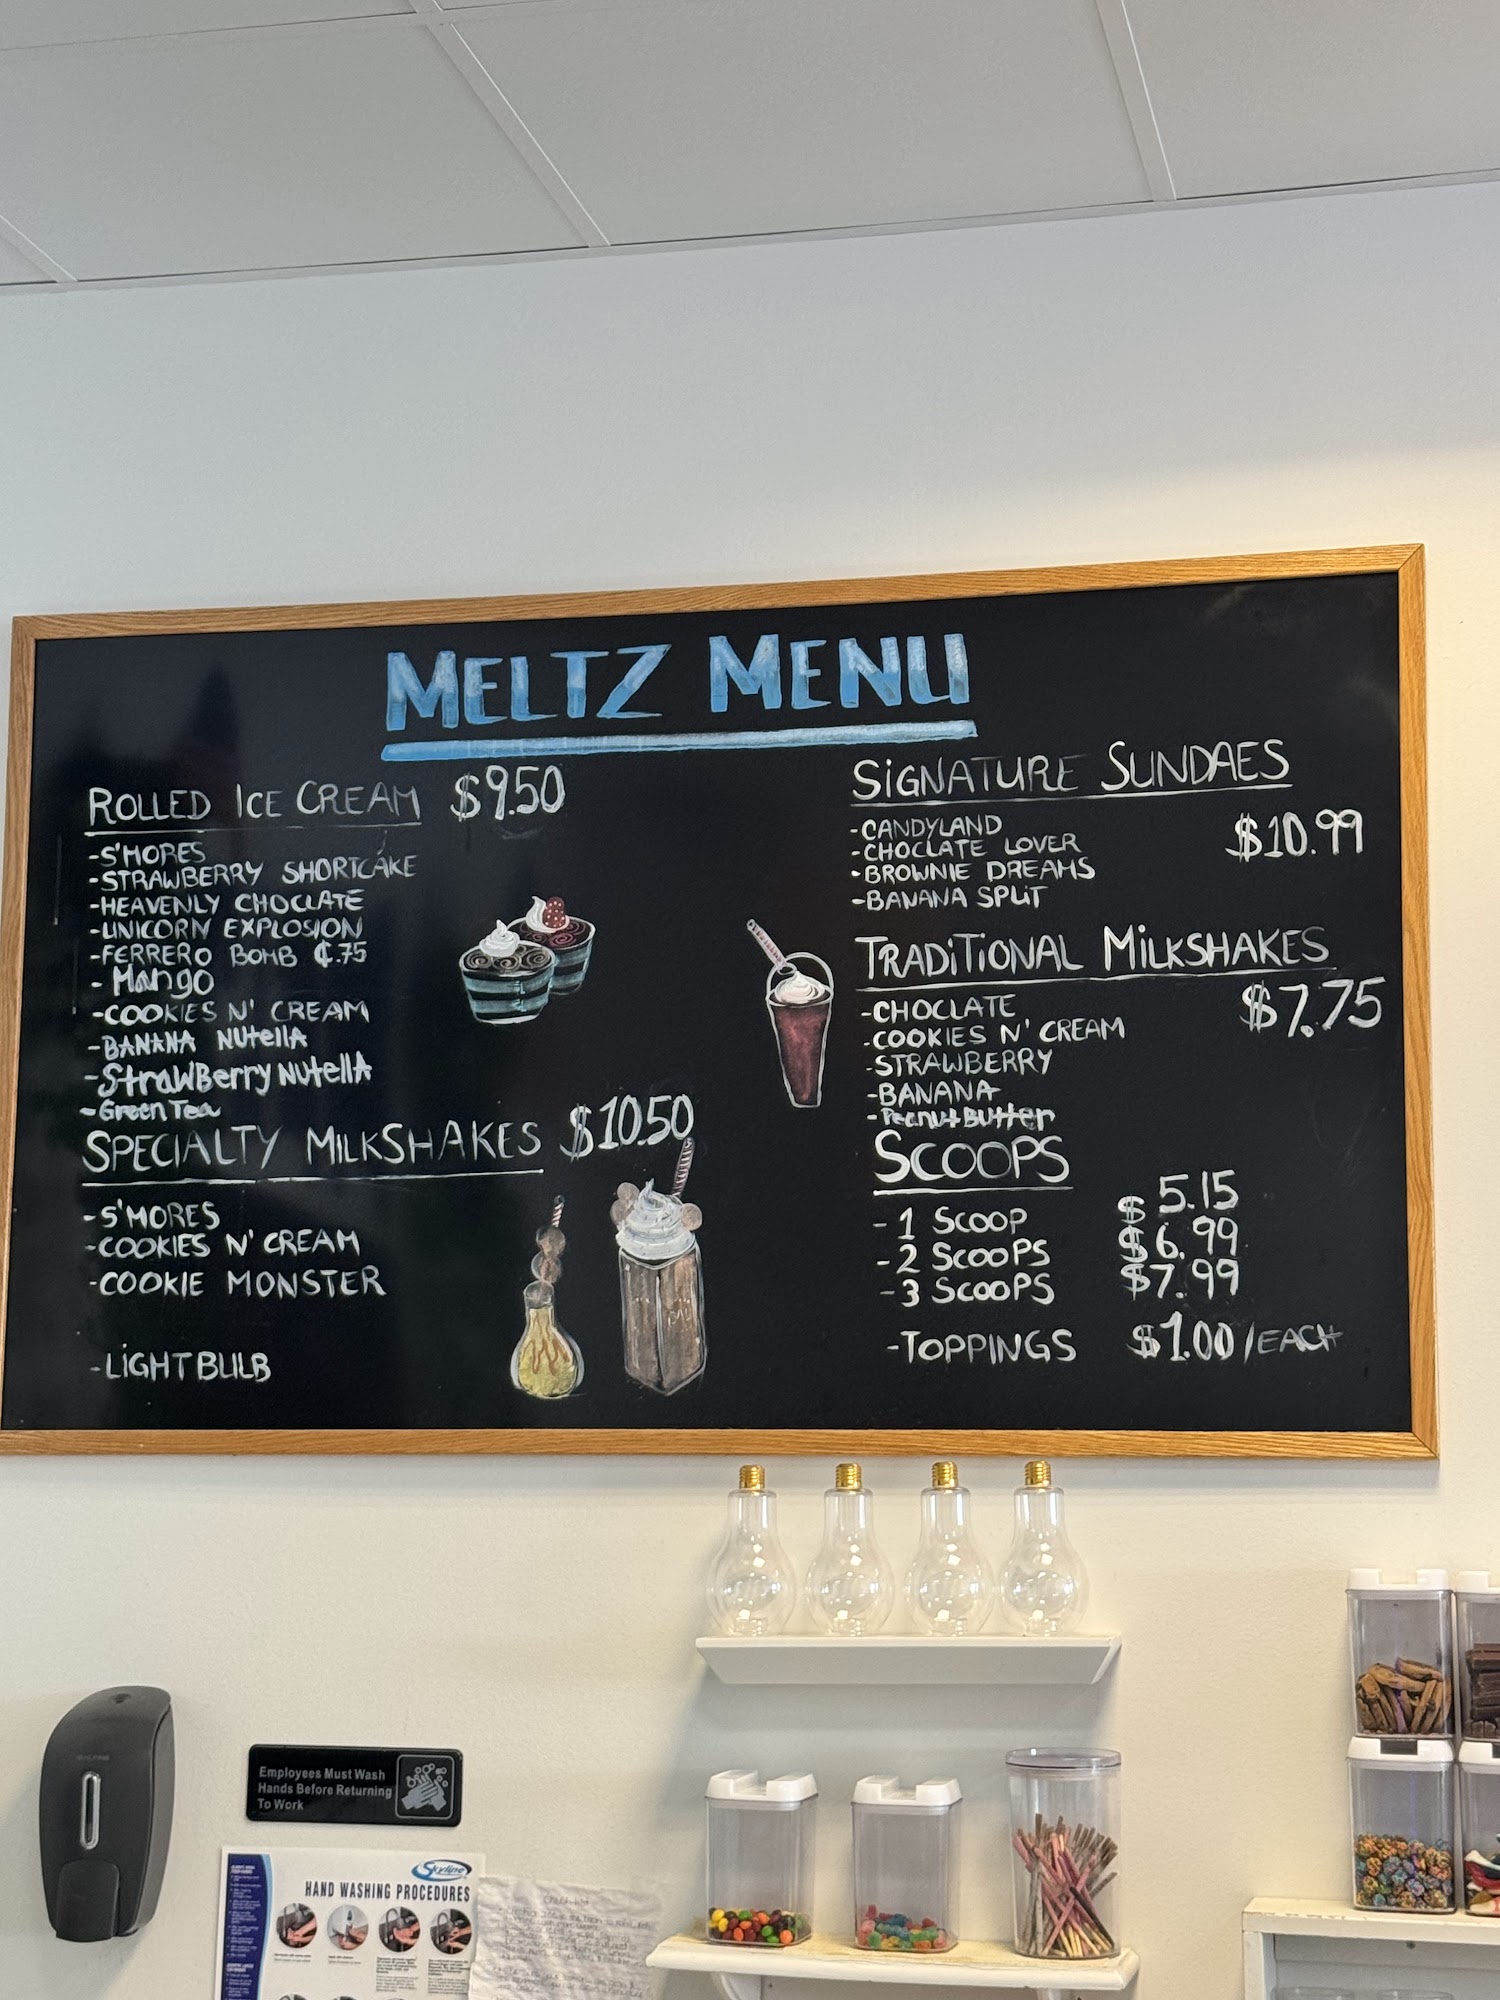 MELTZ MENU
ROLLED ICE CREAM $9.50
-S'MORES
-STRAWBERRY SHORTCAKE
-HEAVENLY CHOCLATE
-UNICORN EXPLOSION
-FERRERO BOMB ₵.75
-Mango
-COOKIES N' CREAM
-BANANA NUtellA
-StrawBerry NUtellA
-Green Tea
SPECIALTY MILKSHAKES $10.50
-S'MORES
-COOKIES N' CREAM
-COOKIE MONSTER
-LIGHTBULB
SIGNATURE SUNDAES
-CANDYLAND $10.99
-CHOCLATE LOVER
-BROWNIE DREAMS
-BANANA SPLIT
TRADITIONAL MILKSHAKES
-CHOCLATE $7.75
-COOKIES N' CREAM
-STRAWBERRY
-BANANA
-Peanut Butter
SCOOPS
-1 SCOOP $5.15
-2 SCOOPS $6.99
-3 SCOOPS $7.99
-TOPPINGS $1.00/EACH
Employees Must Wash
Hands Before Returning
To Work
Skyline
HAND WASHING PROCEDURES